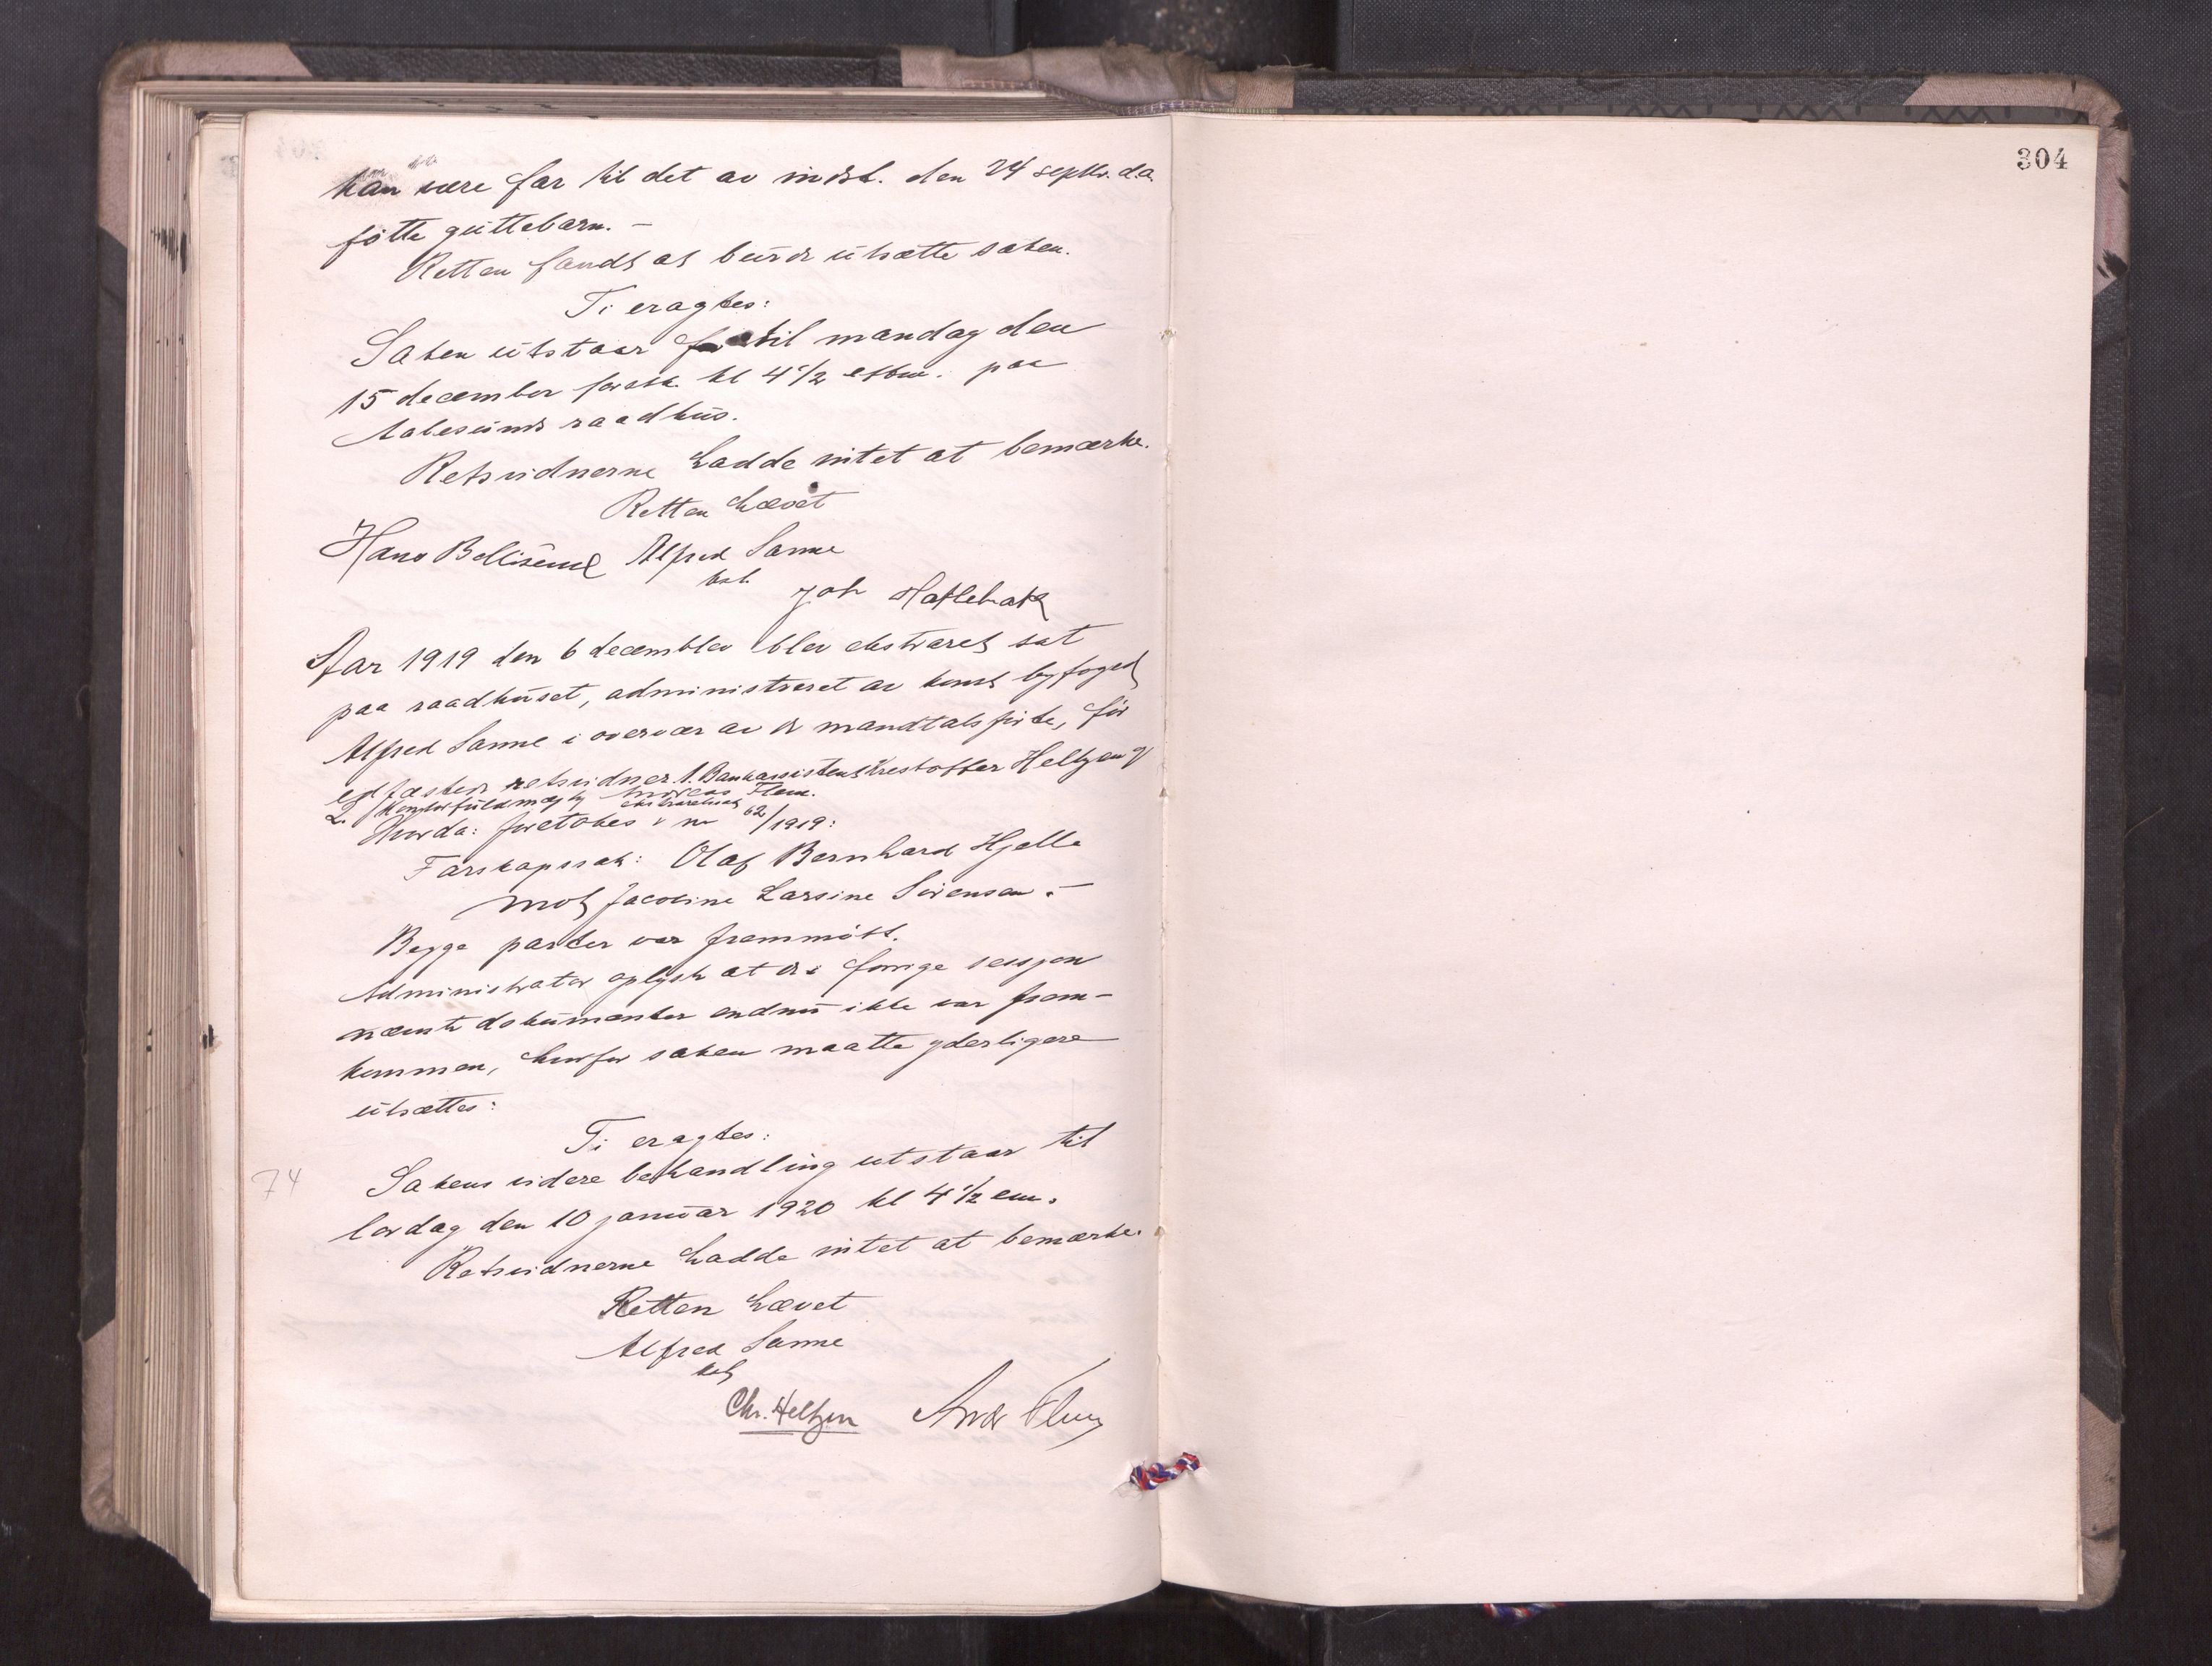 kan være far til det av indst. den 24 septbr. d.a.
føtte guttebarn. –
Retten fandt at burde utsætte saken.
Ti eragtes:
Saken utstaar til mandag den
15 december førstk. kl 4 1/2 eftm. paa
Aalesunds raadhus.
Retsvidnerne hadde intet at bemærke.
Retten hævet
Hans Alfred Sanne
kst.
Joh Hatlebakk
Aar 1919 den 6 december blev ekstraret sat
paa raadhuset, administreret av konst byfoged
Alfred Sanne i overvær av de mandtalsførte, før
edfæstede retsvidner 1. Bankassistent Kristoffer Heltzen og
2. Kontorfuldmægtig Andreas Flem.
Hvorda: foretokes ekstraretssak nr 62/1919:
Farskapssak: Olaf Bernhard Hjelle
mot Jacobine Larsine Sørensen. –
Begge parter var frammøtt.
Administrator oplyste at de i forrige sesjon
nævnte dokumenter endnu ikke var fram-
kommen, hvorfor saken maatte yderligere
utsættes:
Ti eragtes:
74
Sakens videre behandling utstaar til
lørdag den 10 januar 1920 kl 4 1/2 em.
Retsvidnerne hadde intet at bemærke.
Retten hævet
Alfred Sanne
kst
Chr. Heltzen Andr Flem
304